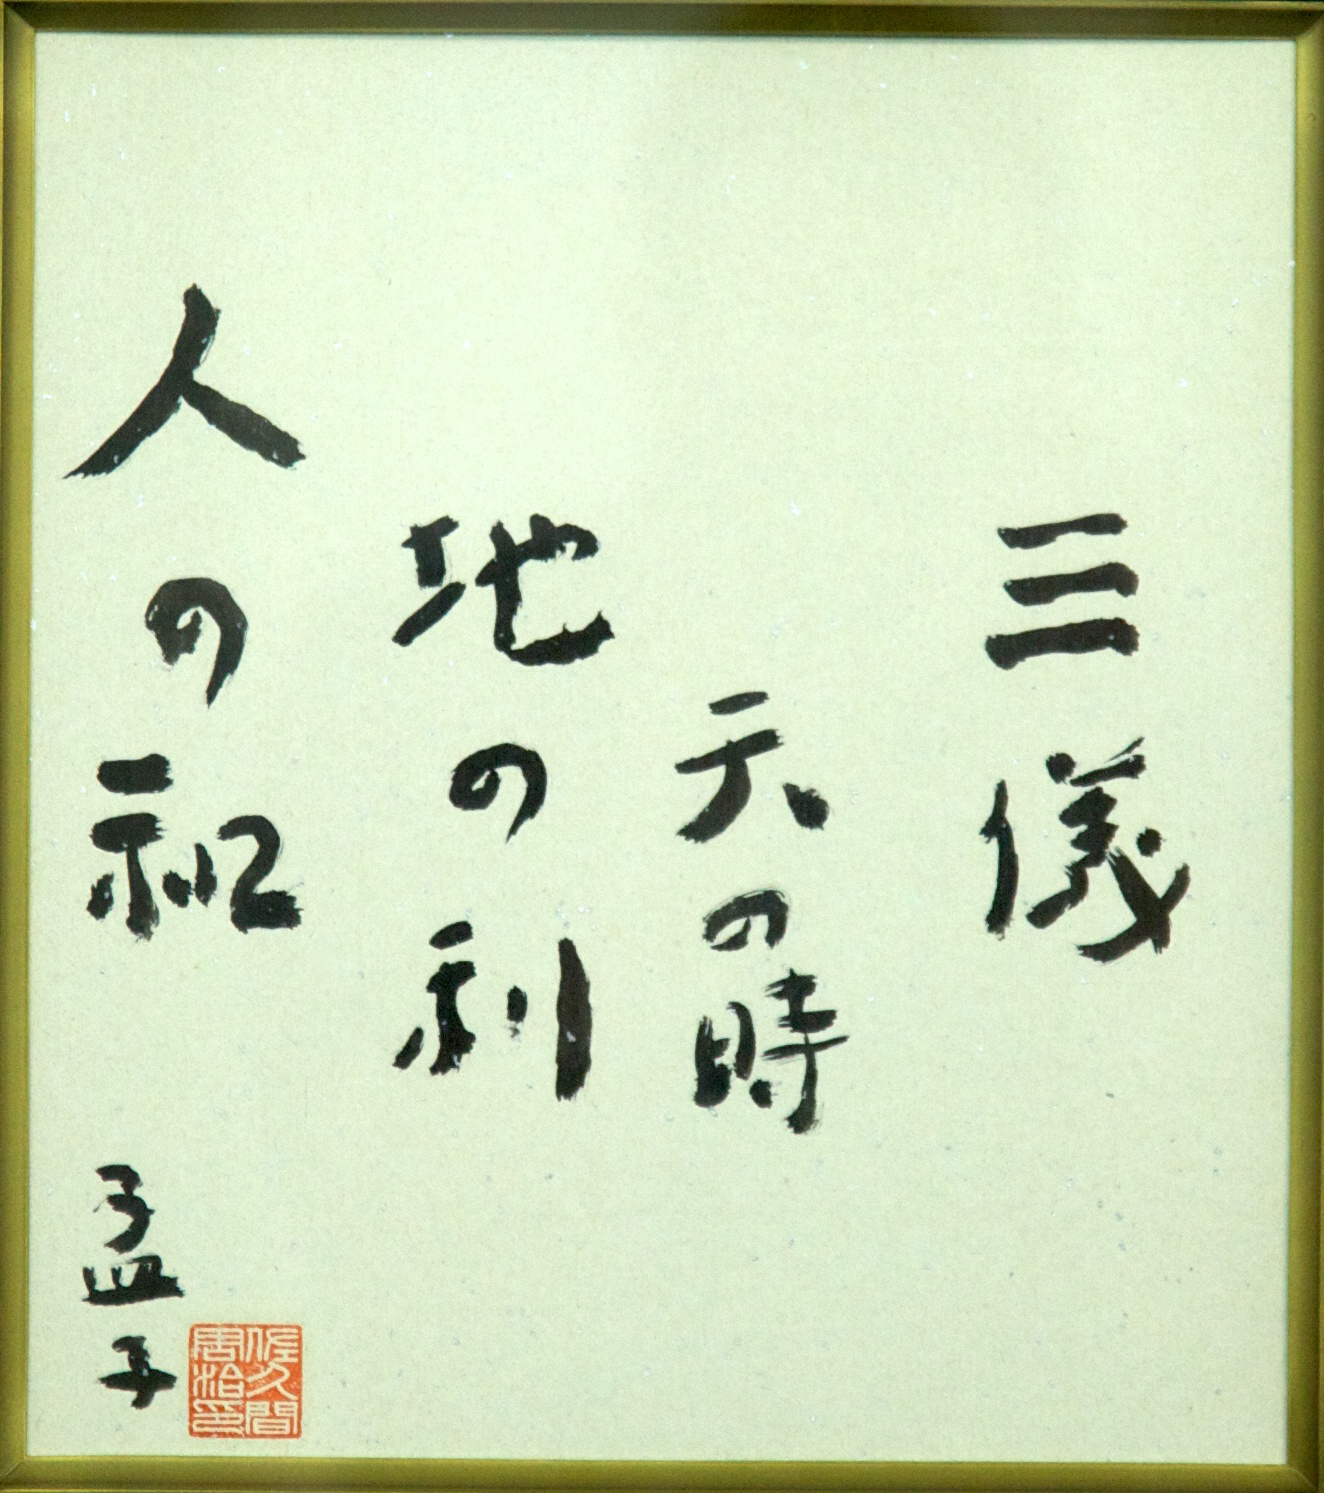 三儀
天の時
地の利
人の和
孟子
佐久間
周治印